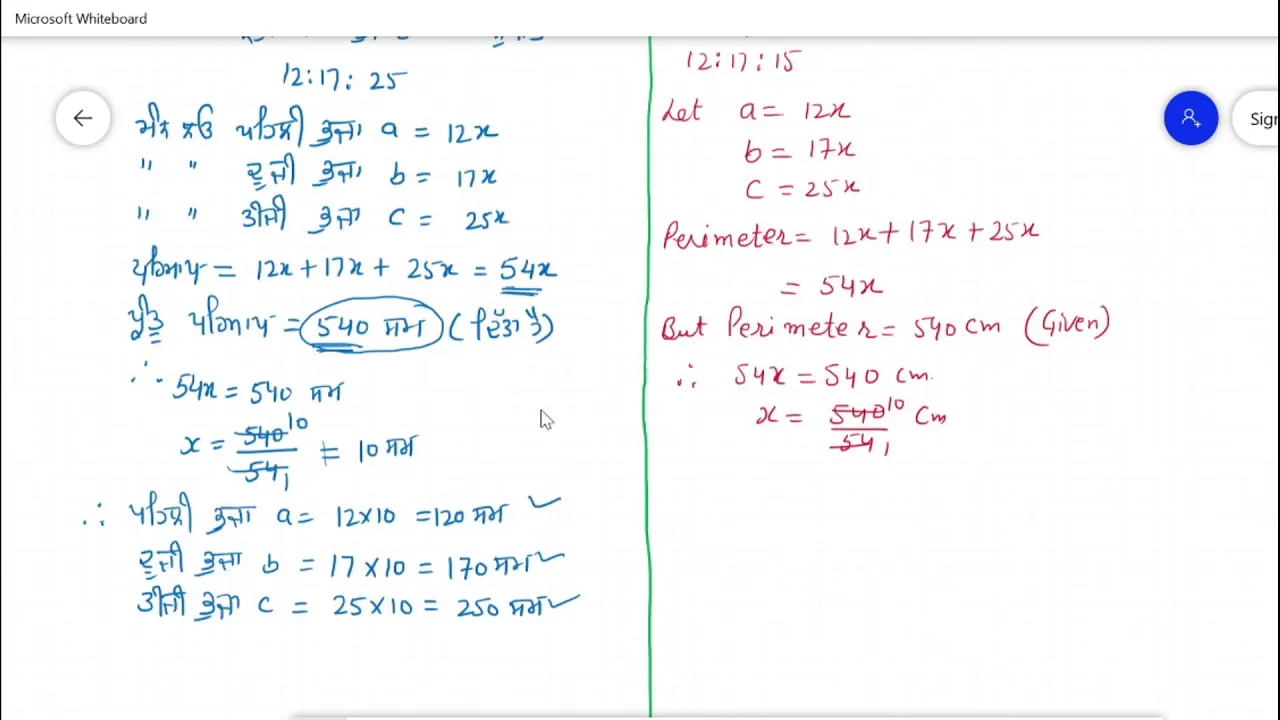 Microsoft Whiteboard
12:17:25
ਮੰਨ ਲਓ ਪਹਿਲੀ ਭੁਜਾ a = 12x
" " ਦੂਜੀ ਭੁਜਾ b = 17x
" " ਤੀਜੀ ਭੁਜਾ c = 25x
ਪਰਿਮਾਪ = 12x + 17x + 25x = 54x
ਪ੍ਰੰਤੂ ਪਰਿਮਾਪ = 540 ਸਮ (ਦਿੱਤਾ ਹੈ)
∴ 54x = 540 ਸਮ
x = 540 10 / 54 1 = 10 ਸਮ
∴ ਪਹਿਲੀ ਭੁਜਾ a = 12×10 = 120 ਸਮ ✓
ਦੂਜੀ ਭੁਜਾ b = 17×10 = 170 ਸਮ ✓
ਤੀਜੀ ਭੁਜਾ c = 25×10 = 250 ਸਮ ✓
12:17:15
Let a = 12x
b = 17x
C = 25x
Perimeter = 12x + 17x + 25x
= 54x
But Perimeter = 540 cm (Given)
∴ 54x = 540 cm.
x = 540 10 / 54 1 Cm
Sig